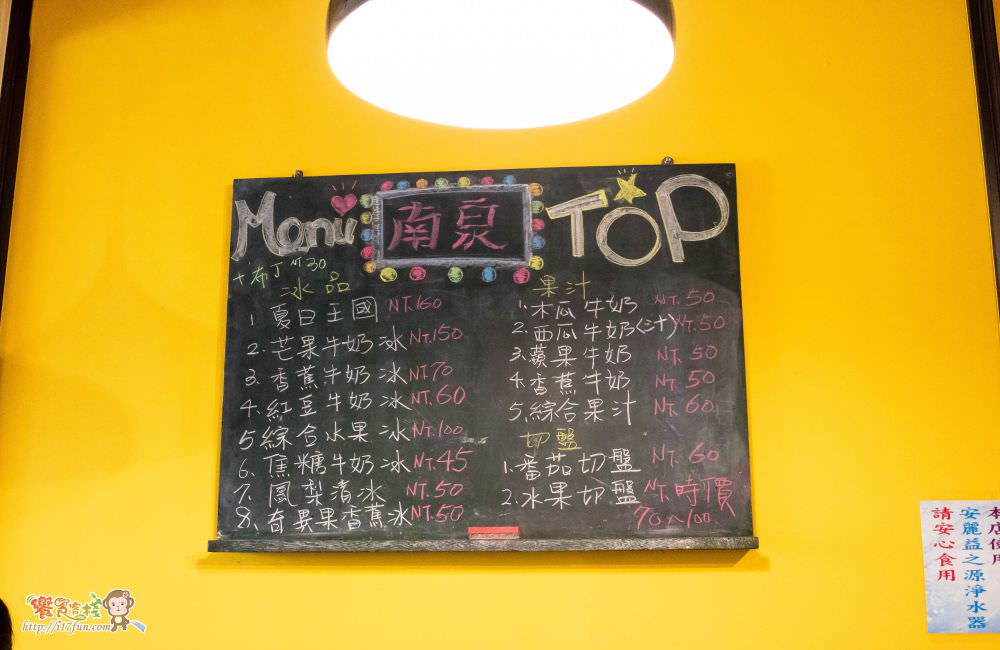 Menu 南泉 TOP
+布丁NT30
冰品
1 夏日王國 NT.160
2.芒果牛奶冰 NT.150
3.香蕉牛奶冰 NT.70
4.紅豆牛奶冰 NT.60
5綜合水果冰 NT.100
6.焦糖牛奶冰 NT.45
7.鳳梨清冰 NT.50
8.奇異果香蕉冰 NT.50
果汁
1.木瓜牛奶 NT.50
2.西瓜牛奶(汁) NT.50
3.蘋果牛奶 NT.50
4.香蕉牛奶 NT.50
5.綜合果汁 NT.60
切盤
1.番茄切盤 NT.60
2.水果切盤 NT.時價
70~100.
本店使用
安麗益之源淨水器
請安心食用
饗賓客棧
http://i17fun.com/